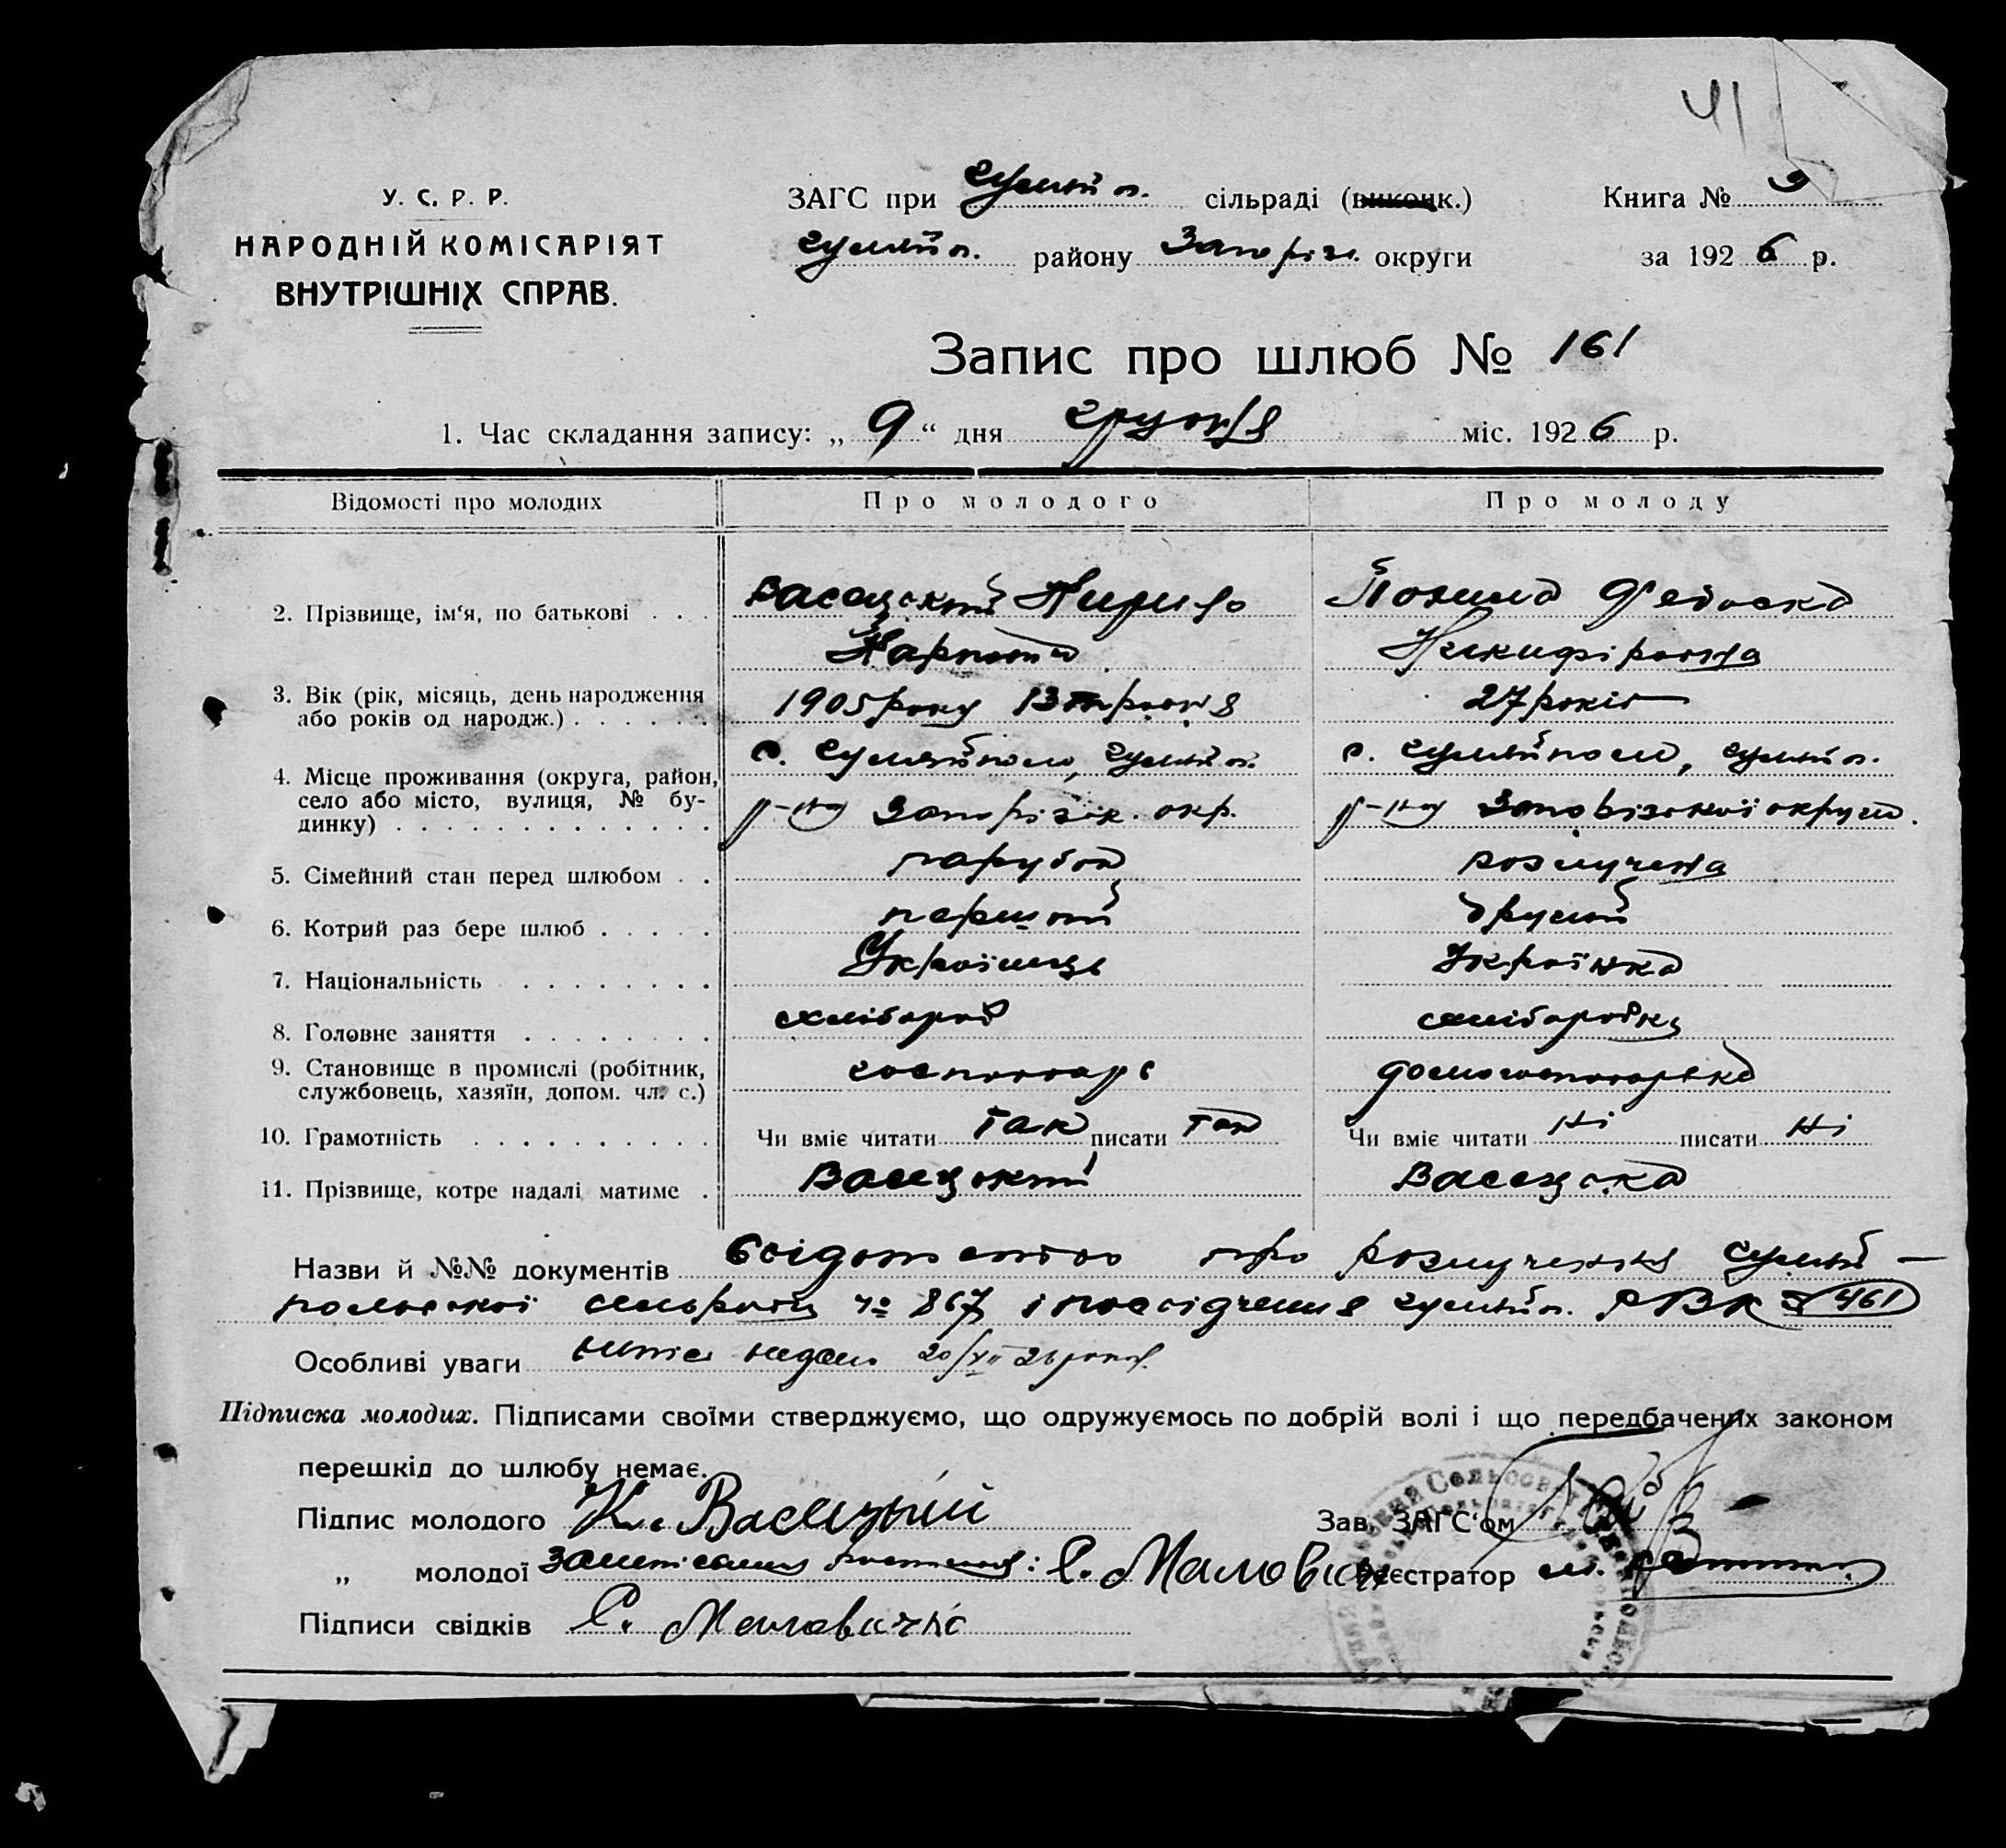 41
У. С. Р. Р.
НАРОДНІЙ КОМІСАРІЯТ
ВНУТРІШНІХ СПРАВ.
ЗАГС при Гуляйп. сільраді (виконк.)
Гуляйп. району Запоріз. округи
Книга №
за 1926 р.
Запис про шлюб № 161
1. Час складання запису: „ 9 “ дня грудня міс. 1926 р.
Відомості про молодих
Про молодого
Про молоду
2. Прізвище, ім‘я, по батькові
Васецький Кирило
Карпович
Федоска
Никифіровна
3. Вік (рік, місяць, день народження
або років од народж.)
1905 року 13
27 років
4. Місце проживання (округа, район,
село або місто, вулиця, № бу-
динку)
с. Гуляйполе, Гуляйп.
р-ну Запорізьк. окр.
с. Гуляйполе, Гуляйп.
р-ну Запорізької округи.
5. Сімейний стан перед шлюбом
парубок
розлучена
6. Котрий раз бере шлюб
перший
другий
7. Національність
Українець
Українка
8. Головне заняття
хлібороб
хліборобка
9. Становище в промислі (робітник,
службовець, хазяїн, допом. чл. с.)
господарь
домогосподарька
10. Грамотність
Чи вміє читати так писати так
Чи вміє читати ні писати ні
11. Прізвище, котре надалі матиме
Васецький
Васецька
Назви й №№ документів про розлучення Гуляй-
польської сельради № 867 і посвідчення Гуляйп. РВК № 461
Особливі уваги 20/XII 26
Підписка молодих. Підписами своїми стверджуємо, що одружуємось по добрій волі і що передбачених законом
перешкід до шлюбу немає.
Підпис молодого К. Васецький
Зав. ЗАГС‘ом
„ молодої
Реєстратор
Підписи свідків